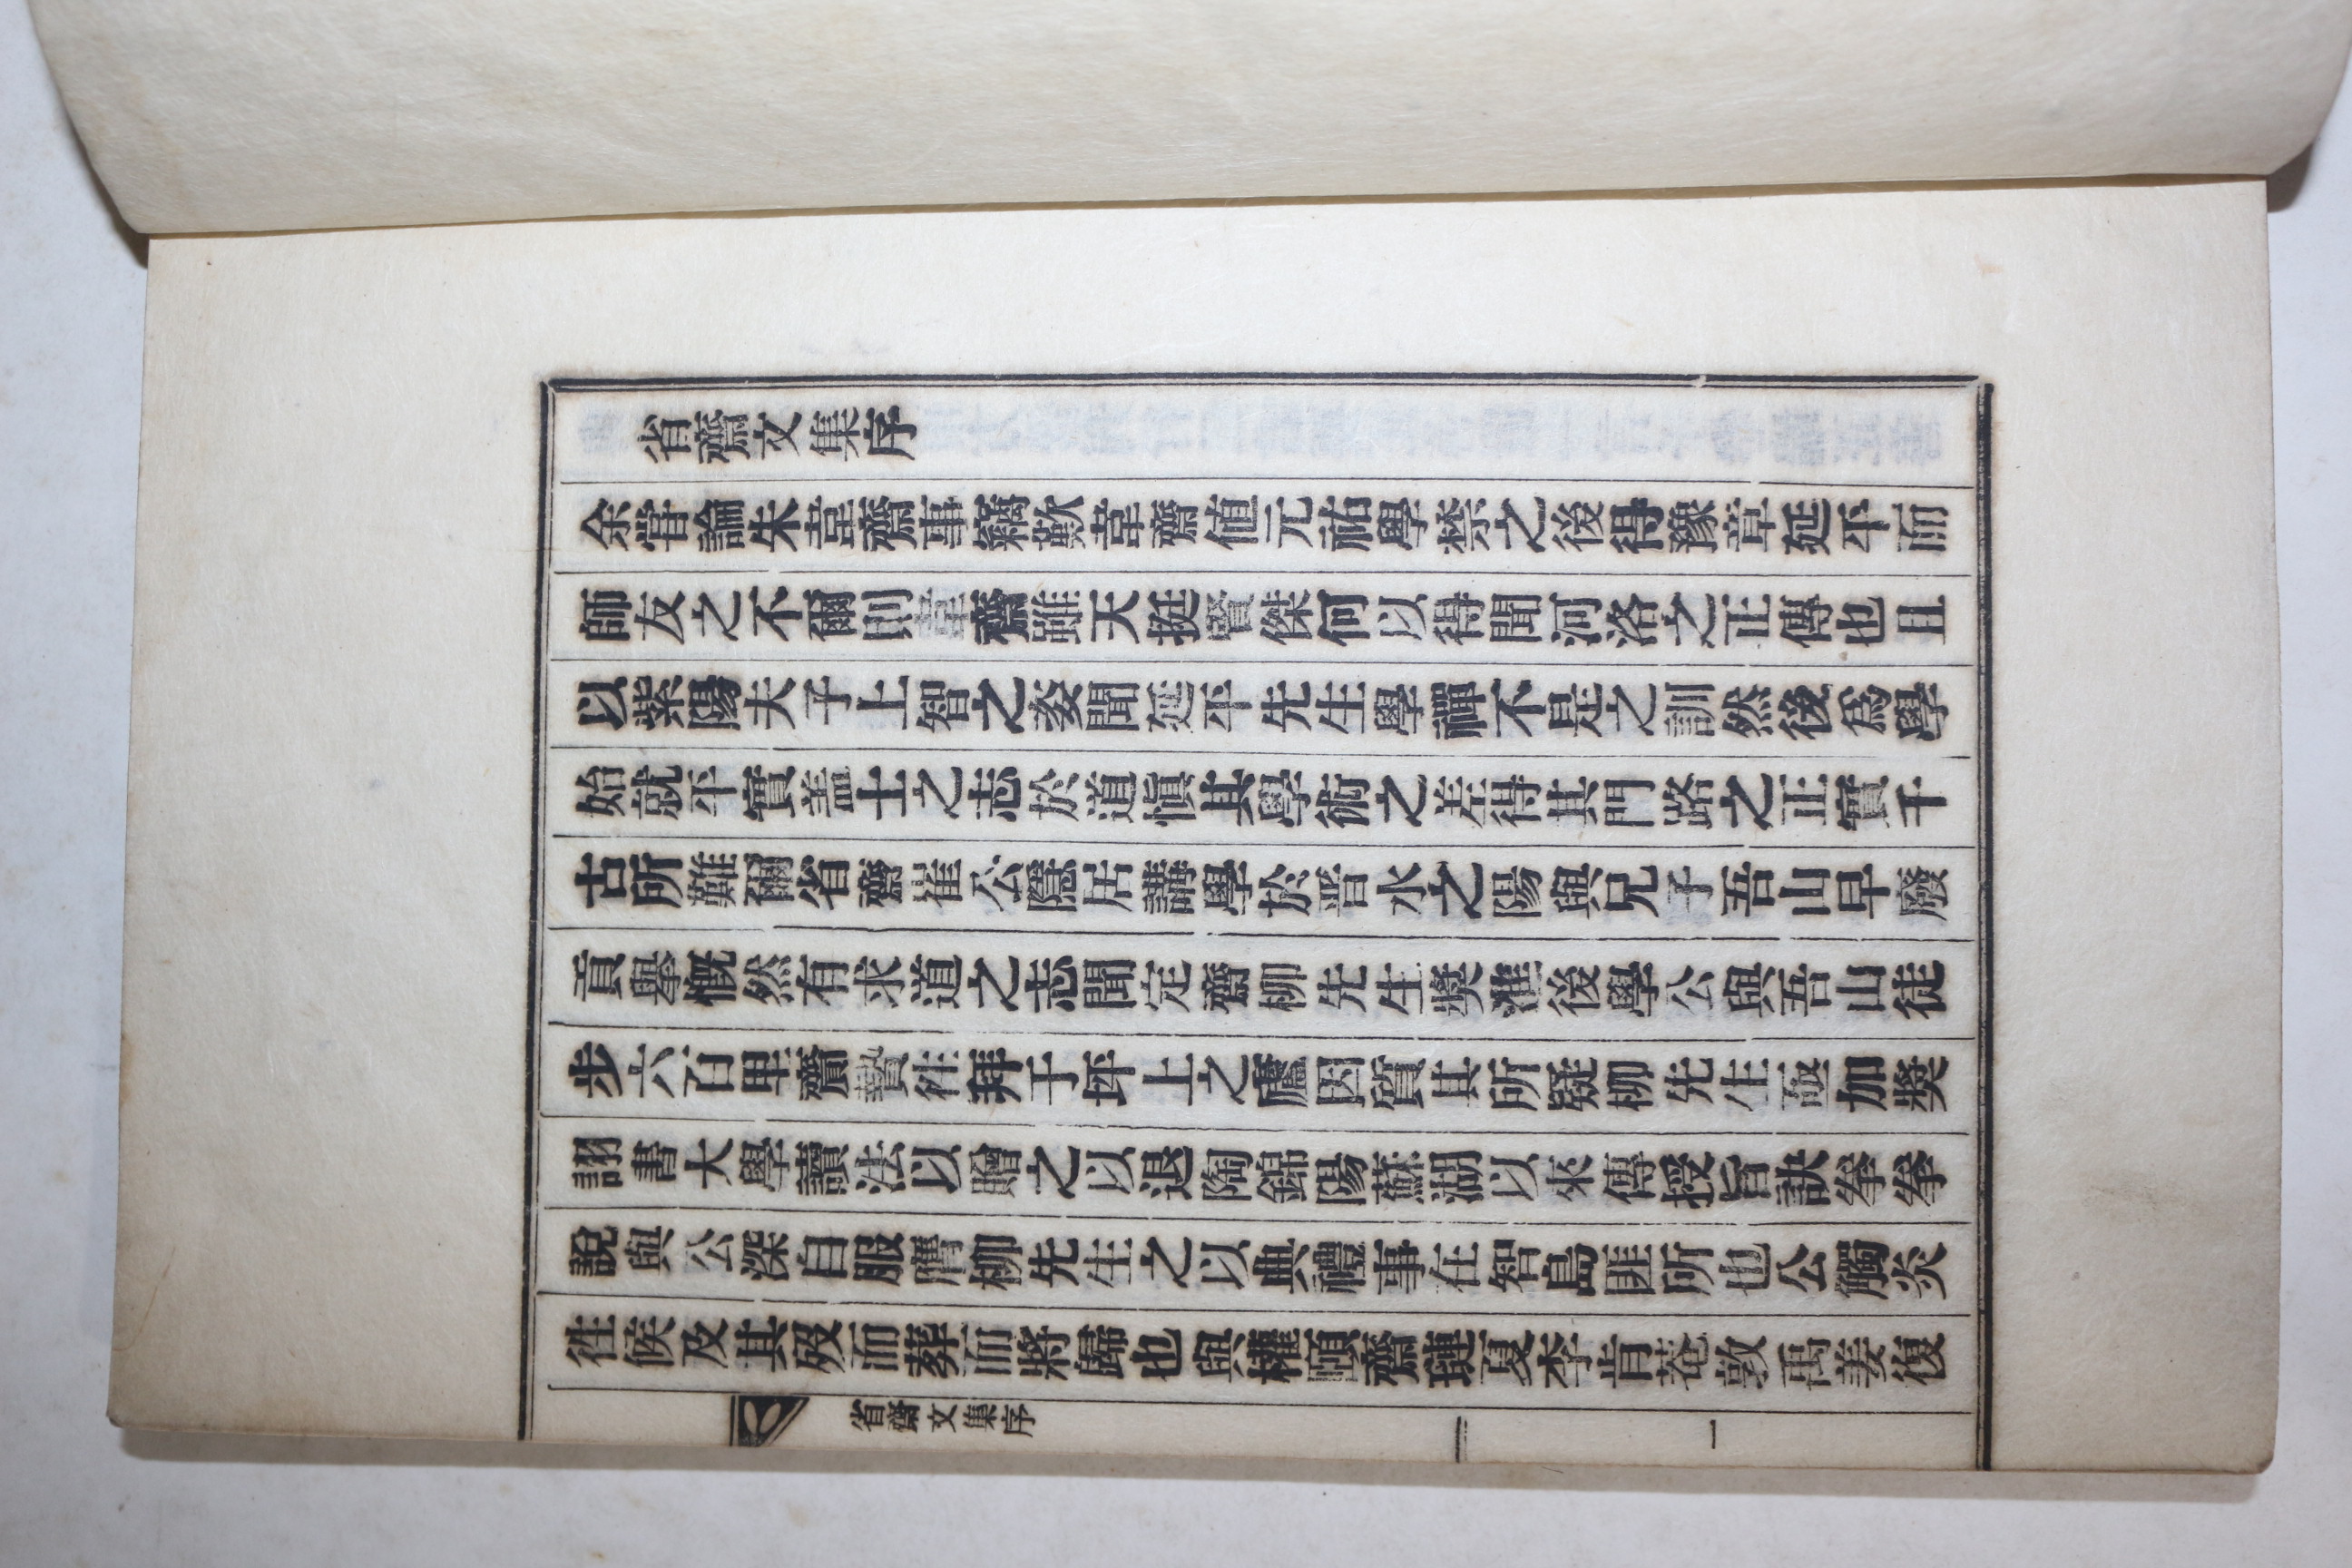 省齋文集序
余嘗論朱韋齋事竊歎韋齋値元祐學禁之後得豫章延平而
師友之不爾則韋齋雖天挺賢傑何以得聞河洛之正傳也且
以紫陽夫子上智之姿聞延平先生學禪不是之訓然後爲學
始就平實盖士之志於道愼其學術之差得其門路之正實千
古所難爾省齋崔公隱居講學於晋水之陽與兄子吾山早廢
貢擧慨然有求道之志聞定齋柳先生奬進後學公與吾山徒
步六百里齋贄往拜于坪上之廬因質其所疑柳先生亟加奬
詡書大學讀法以贈之以退陶錦陽蘇湖以來傳授旨訣拳拳
說與公深自服膺柳先生之以典禮事在智島匪所也公觸炎
往候及其歿而葬而將歸也與權頤齋璉夏李肯菴敦禹姜復
省齋文集序
一